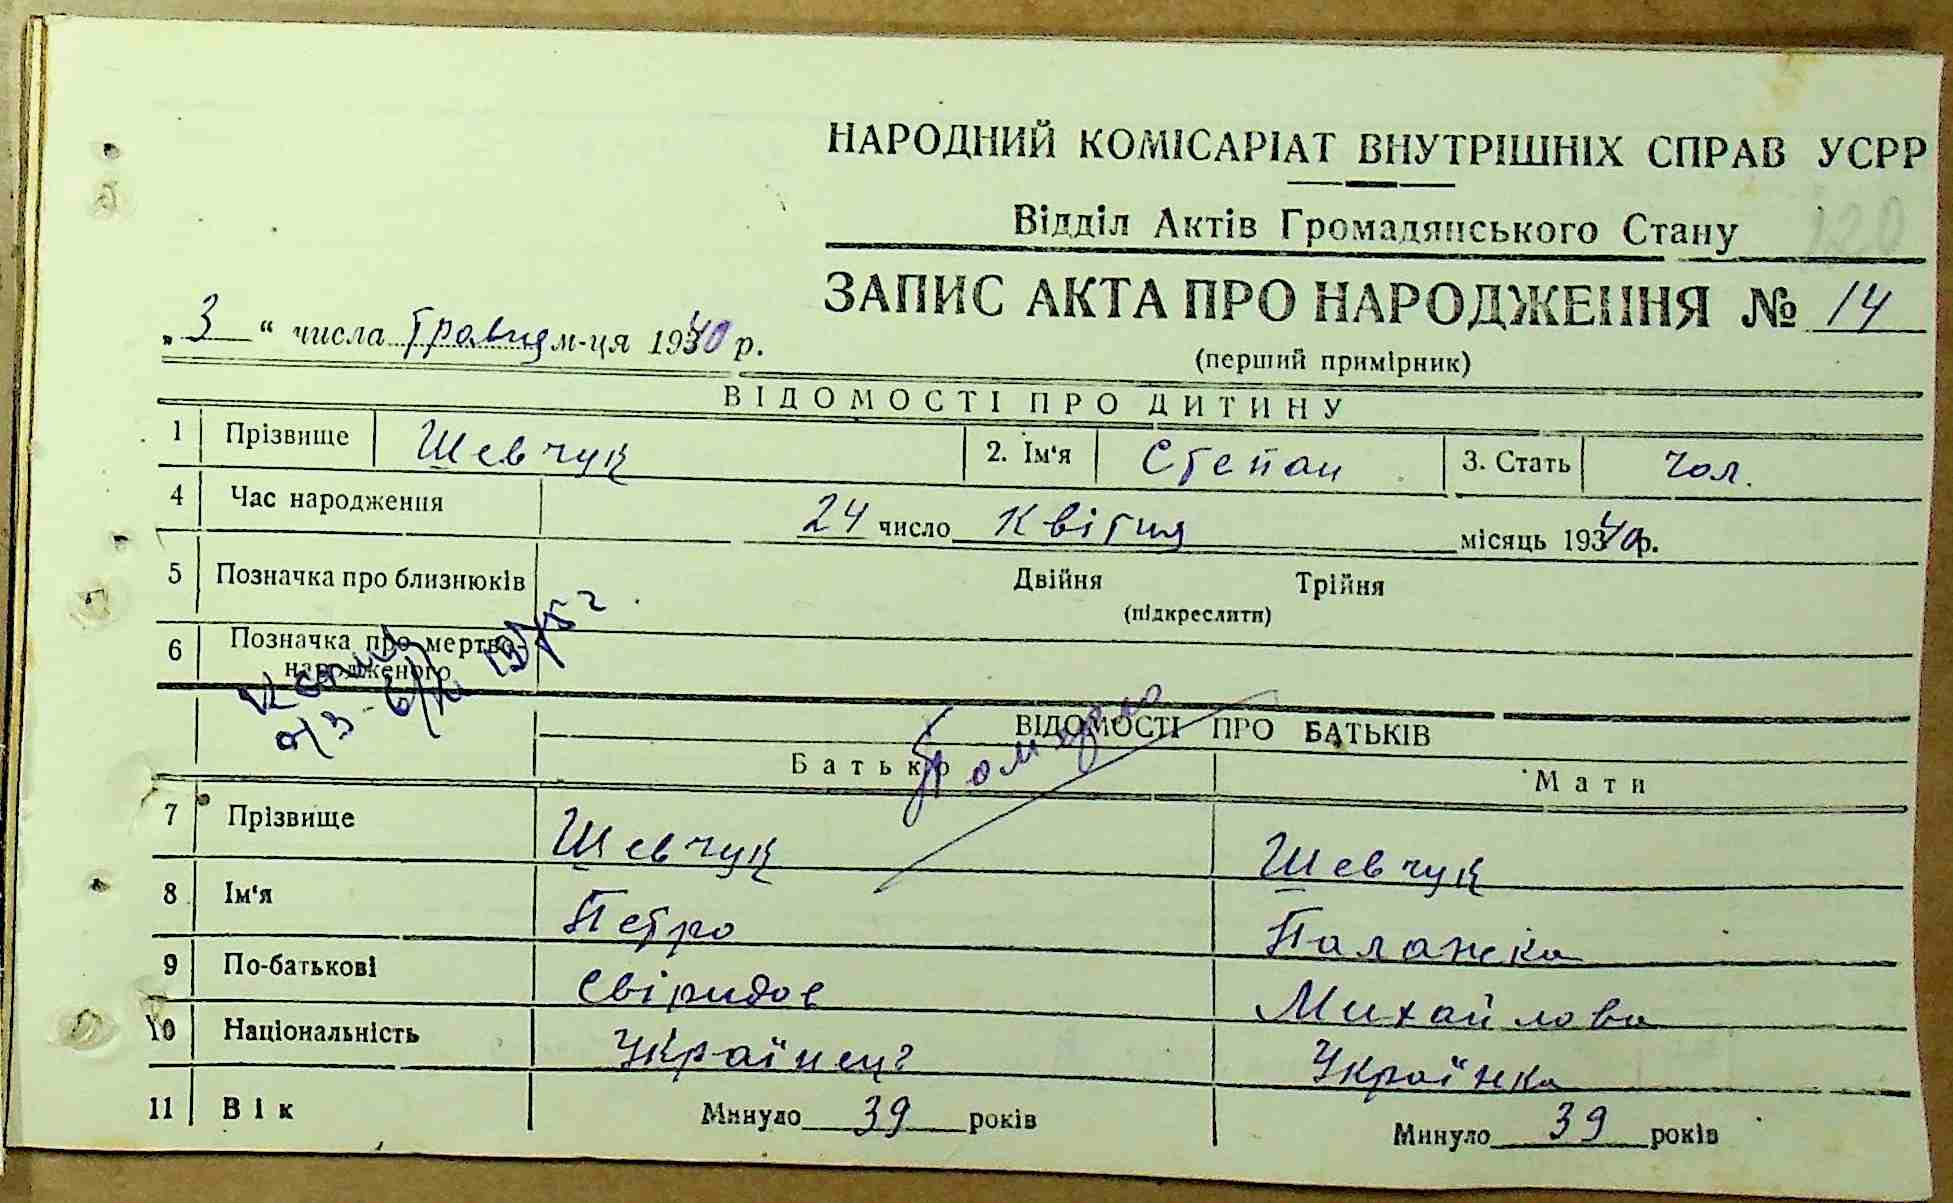 НАРОДНИЙ КОМІСАРІАТ ВНУТРІШНІХ СПРАВ УСРР
Відділ Актів Громадянського Стану 120
ЗАПИС АКТА ПРО НАРОДЖЕННЯ № 14
„ 3 “ числа Травня м-ця 1940 р.
(перший примірник)
ВІДОМОСТІ ПРО ДИТИНУ
1 Прізвище Шевчук 2. Ім'я Степан 3. Стать чол.
4 Час народження 24 число Квітня місяць 1940 р.
5 Позначка про близнюків Двійня Трійня
(підкреслити)
6 Позначка про мертво-
народженого
1975 г
ВІДОМОСТІ ПРО БАТЬКІВ
Батько Мати
7 Прізвище Шевчук Шевчук
8 Ім'я Петро Палажка
9 По-батькові Свіридов Михайлова
10 Національність Українець Українка
11 Вік Минуло 39 років Минуло 39 років